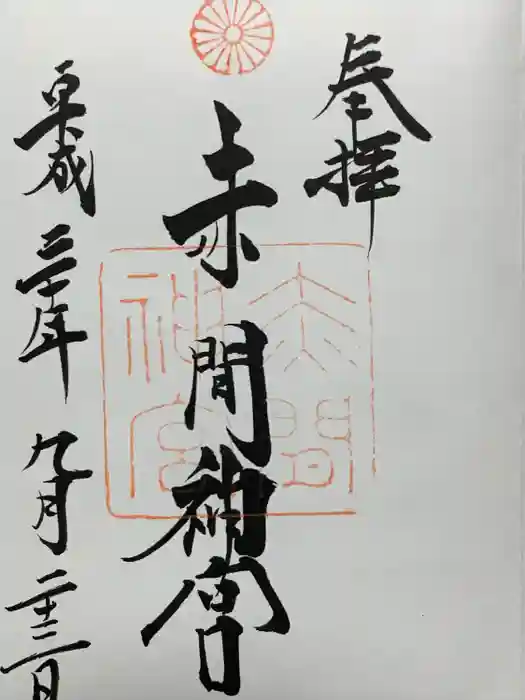 奉拝
赤間神宮
赤間
神宮
平成三十年九月二十三日